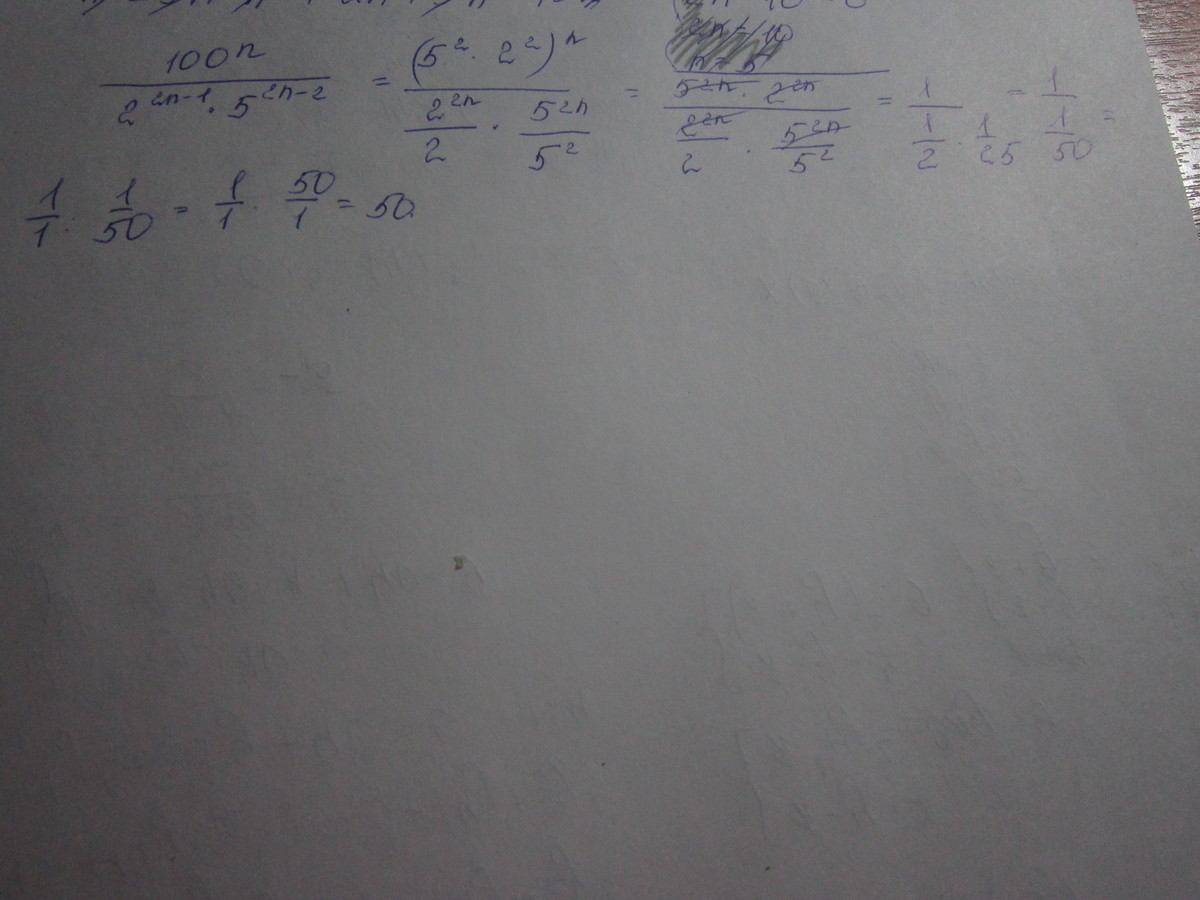 100ⁿ / (2²ⁿ⁻¹ · 5²ⁿ⁻²) = (5² · 2²)ⁿ / (2²ⁿ/2 · 5²ⁿ/5²) = (5²ⁿ · 2²ⁿ) / (2²ⁿ/2 · 5²ⁿ/5²) = 1 / (1/2 · 1/25) = 1 / (1/50) =
1/1 : 1/50 = 1/1 · 50/1 = 50.